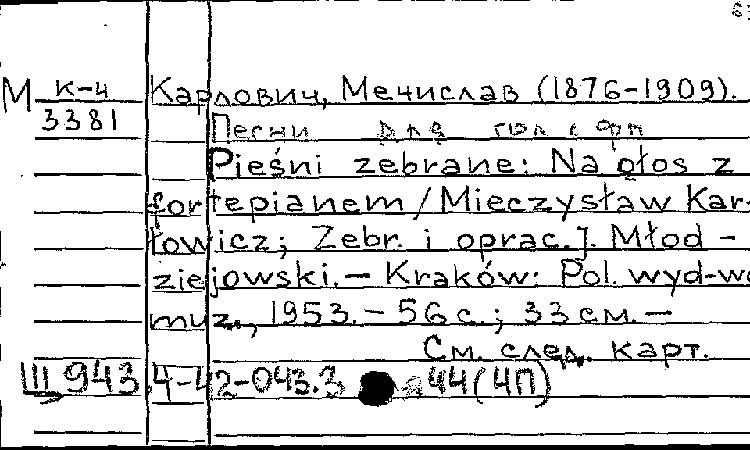 М К-4 Карлович, Мечислав (1876-1909).
3381 Песни для гол с фп
Pieśni zebrane: Na głos z
fortepianem / Mieczysław Kar-
łowicz; Zebr. i oprac. J. Młod -
ziejowski. - Kraków: Pol. wyd-wo
muz., 1953. - 56 с.; 33 см. -
См. след. карт.
Ш 943.4-42-043.3 я44(4П)